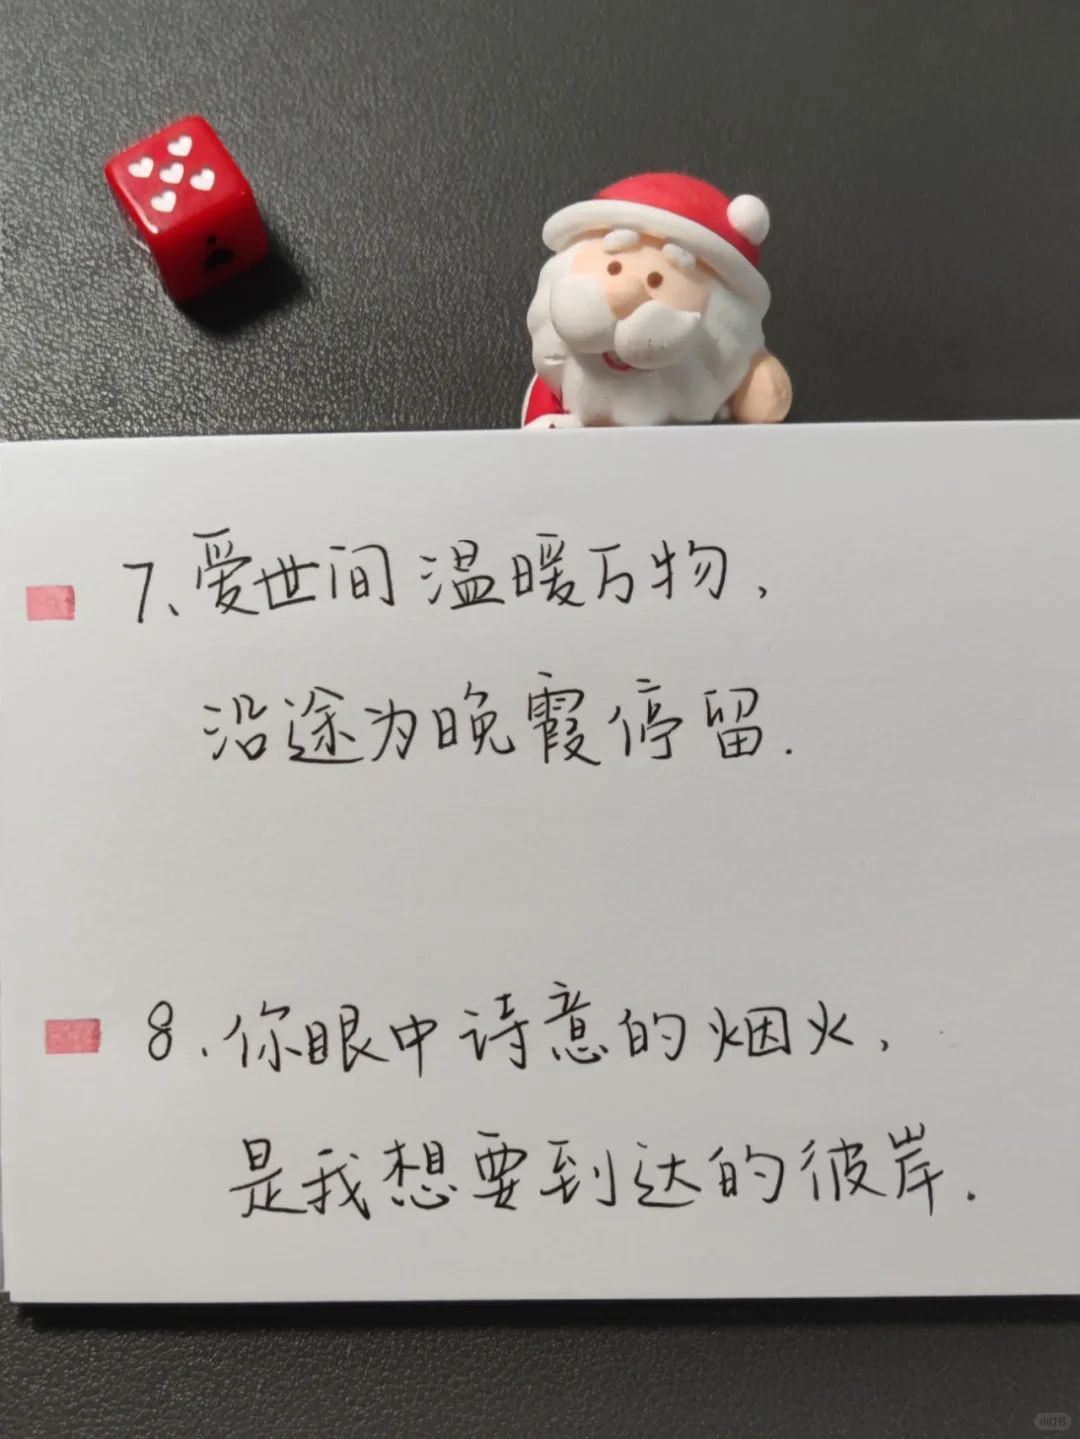 7、爱世间温暖万物,
沿途为晚霞停留.
8.你眼中诗意的烟火,
是我想要到达的彼岸.
小红书